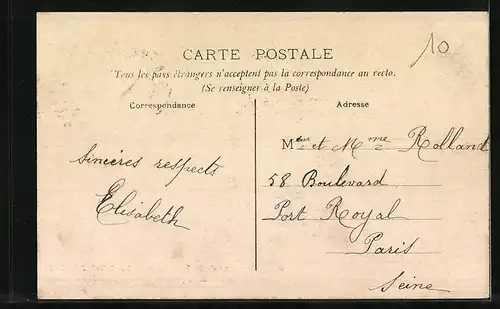 10
CARTE POSTALE
Tous les pays étrangers n'acceptent pas la correspondance au recto.
(Se renseigner à la Poste)
Correspondance
Adresse
Sincères respects
Elisabeth
Msieur et Mme Rolland
58 Boulevard
Port Royal
Paris
Seine